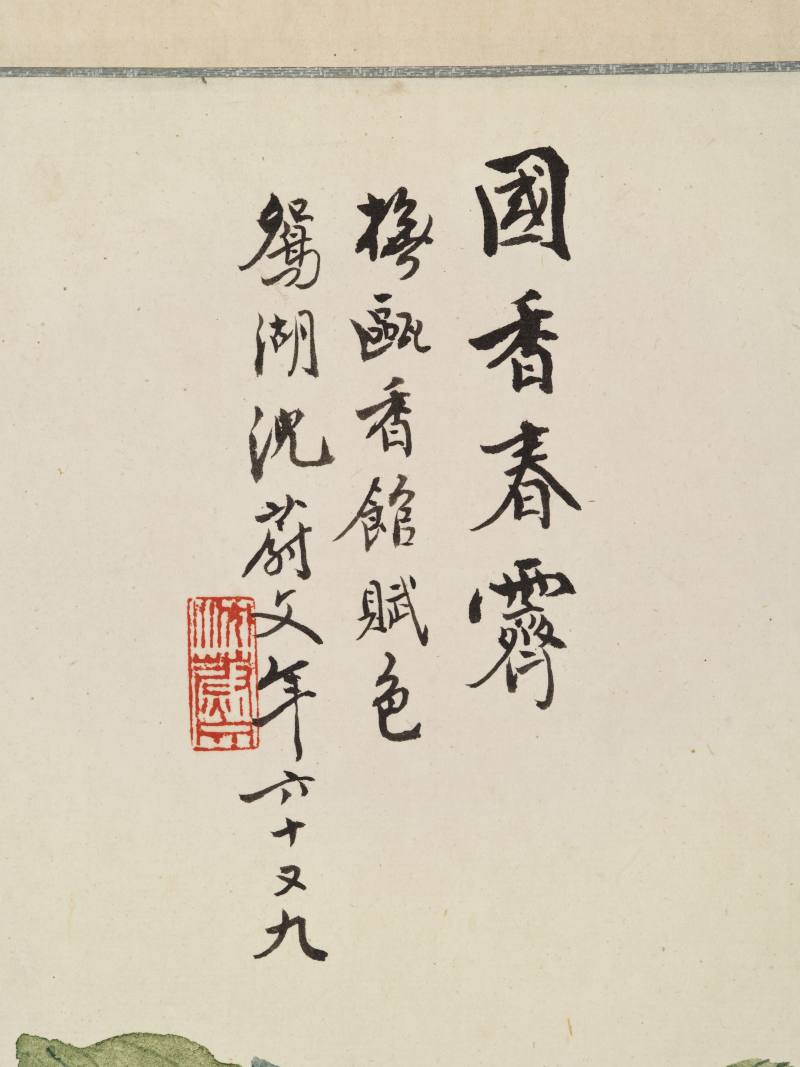 國香春霽
橅甌香館賦色
鴛湖沈蔚文年六十又九